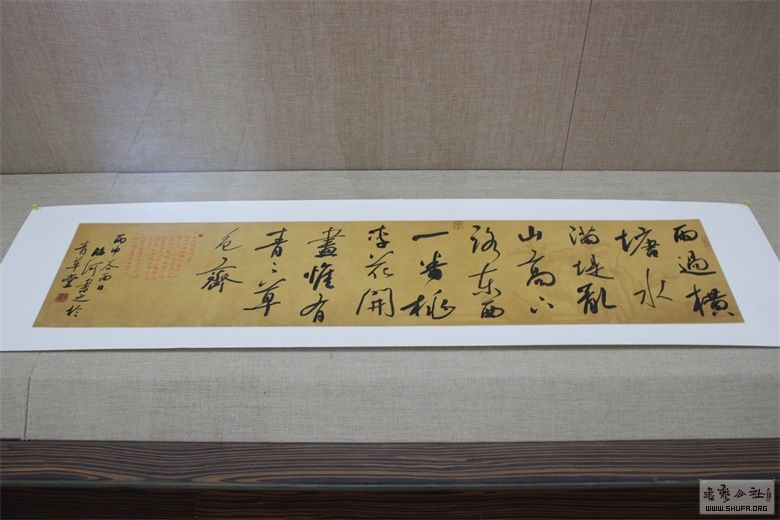 雨過橫
塘水
滿堤亂
山高下
路東西
一番桃
李花開
盡惟有
青〻草
色齊
丙申冬雨日
書之於
青草堂
書藝公社
WWW.SHUFA.ORG